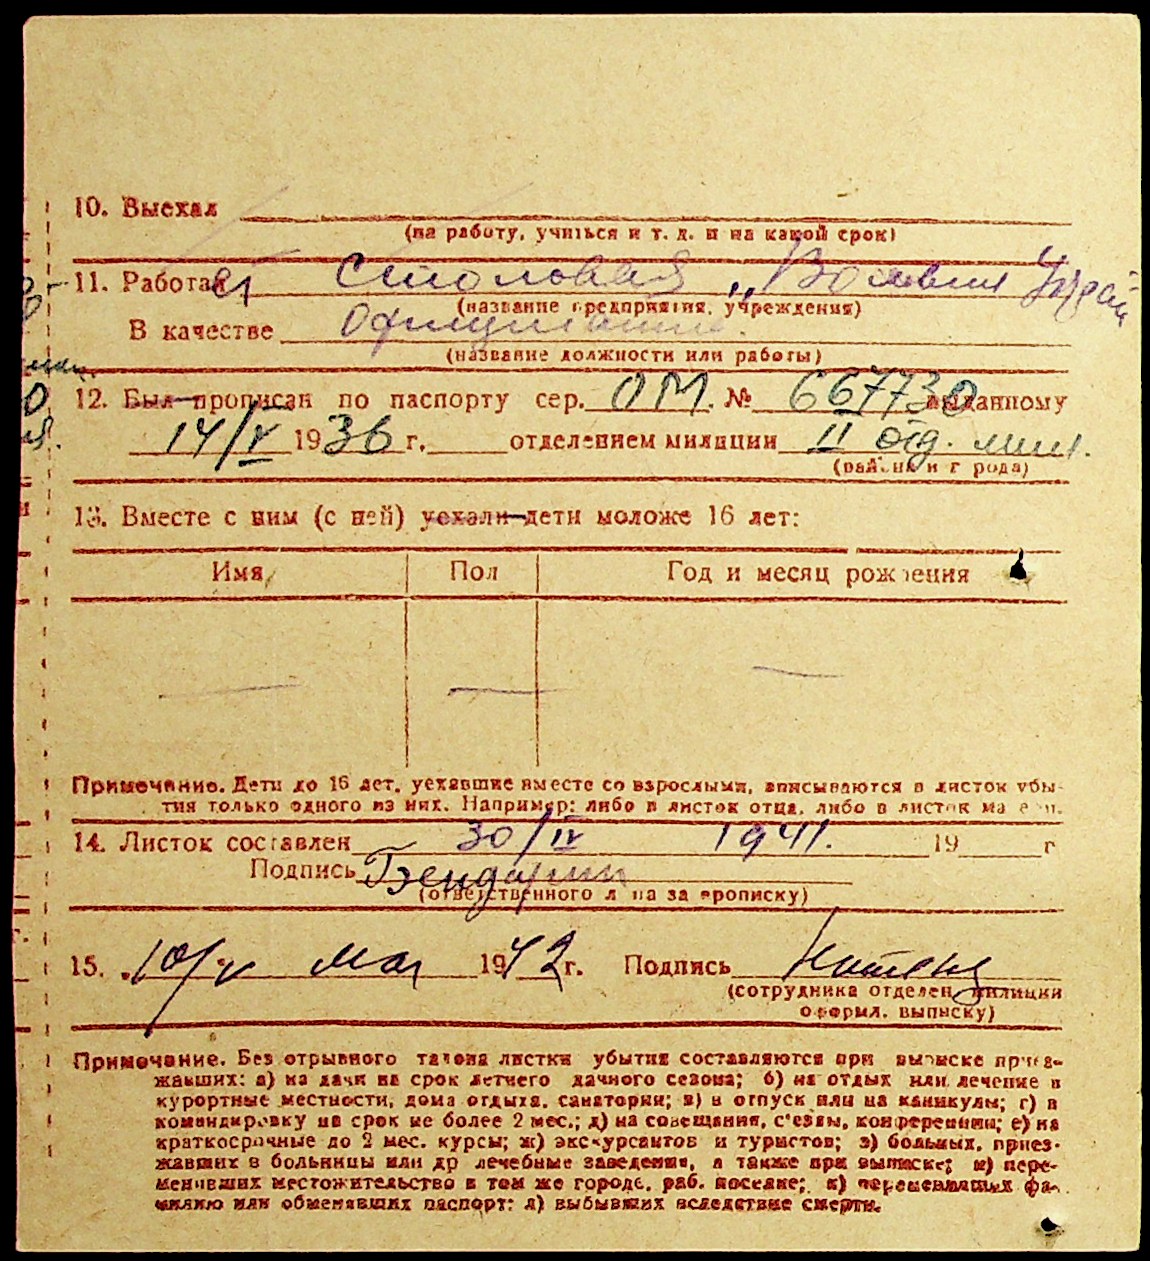 10. Выехал
(на работу, учиться и т. д. и на какой срок)
11. Работает Столовая „
(название предприятия, учреждения)
В качестве
(название должности или работы)
12. Был прописан по паспорту сер. ОМ. № 667730 выданному
14/V 1936 г. отделением милиции II отд. мил.
(района и города)
13. Вместе с ним (с ней) уехали дети моложе 16 лет:
Имя Пол Год и месяц рождения
— — —
Примечание. Дети до 16 лет, уехавшие вместе со взрослыми, вписываются в листок убы-
тия только одного из них. Например: либо в листок отца, либо в листок матери.
14. Листок составлен 30/IV 1941. 19 г
Подпись
(ответственного лица за прописку)
15. 10/V мая 1942 г. Подпись
(сотрудника отделен. милиции
оформл. выписку)
Примечание. Без отрывного талона листки убытия составляются при выписке приез-
жавших: а) на дачи на срок летнего дачного сезона; б) на отдых или лечение в
курортные местности, дома отдыха, санатории; в) в отпуск или на каникулы; г) в
командировку на срок не более 2 мес.; д) на совещания, с'езды, конференции; е) на
краткосрочные до 2 мес. курсы; ж) экскурсантов и туристов; з) больных, приез-
жавших в больницы или др лечебные заведения, а также при выписке; и) пере-
менивших местожительство в том же городе, раб. поселке; к) переменивших фа-
милию или обменявших паспорт; л) выбывших вследствие смерти.